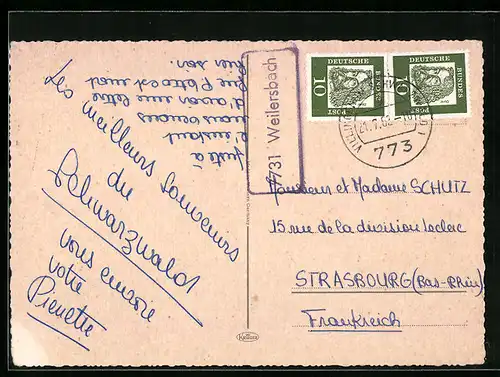 Les meilleurs souvenirs
du
Schwarzwald
vous envoie
votre
Pierrette
juste à
l'instant
nous venons
d'avoir une lettre
que Pierrot est mort
hier soir.
7731 Weilersbach
DEUTSCHE
BUNDES
POST
10
DEUTSCHE
BUNDES
POST
10
773
Monsieur et Madame SCHUTZ
15 rue de la division Leclerc
STRASBOURG (Bas-Rhin)
Frankreich
Krüger